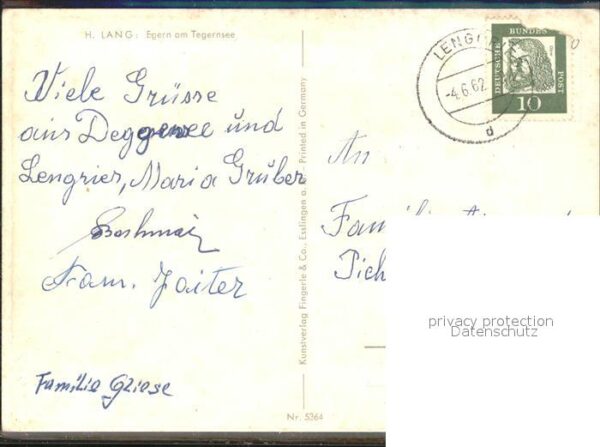 H. LANG: Egern am Tegernsee
Viele Grüsse
aus und
Lengrier, Maria Gruber
Fam. Jaiter
Familie Gliese
Kunstverlag Fingerle & Co., Esslingen a. N. Printed in Germany
Nr. 5364
-4.6.62
d
DEUTSCHE BUNDES POST
10
An
Famili
Pich
privacy protection
Datenschutz